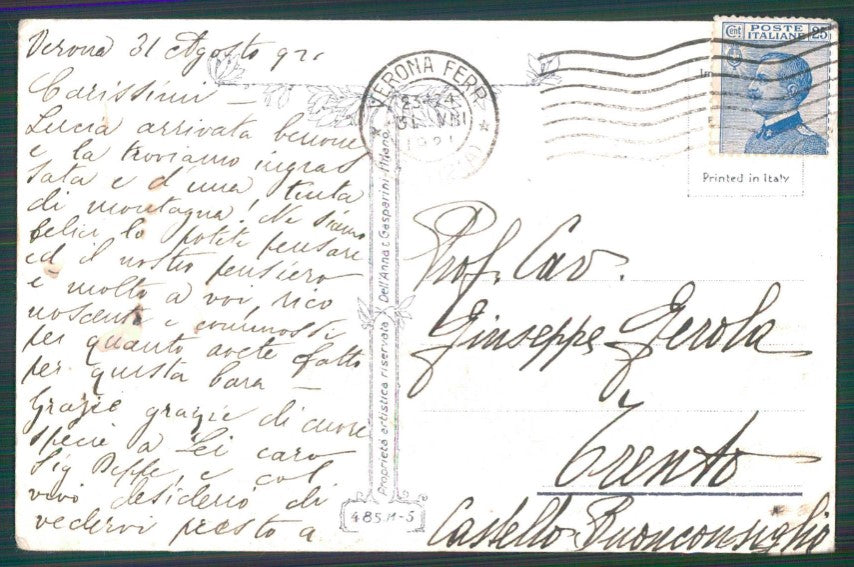 Verona 31 Agosto 921
Carissimi —
Lucia arrivata benone
e la troviamo ingras
sata e d'una tinta
di montagna! Ne siamo
felici lo potete pensare
ed il nostro pensiero
è molto a voi rico
noscente e commossi
per quanto avete fatto
per questa cara —
Grazie grazie di cuore
specie a Lei caro
Sig Beppe, e col
vivo desiderio di
vedervi presto a
VERONA FERR.
23-24
31 VIII
1921
Proprietà artistica riservata Dell'Anna & Gasparini-Milano
485 M-5
POSTE ITALIANE
Cent 25
Printed in Italy
Prof. Cav.
Giuseppe Gerola
Trento
Castello Buonconsiglio